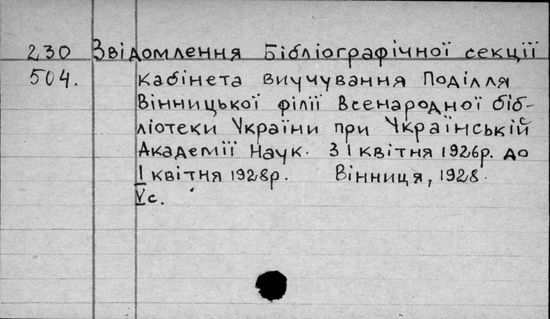 230 Звідомлення Бібліографічної секції
504. кабінета виучування Поділля
Вінницької філії Всенародної біб-
ліотеки України при Українській
Академії Наук. З 1 квітня 1926р. до
1 квітня 1928р. Вінниця, 1928.
Vс.